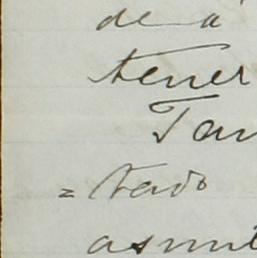 de a
tener
Tan
= tado
asunt